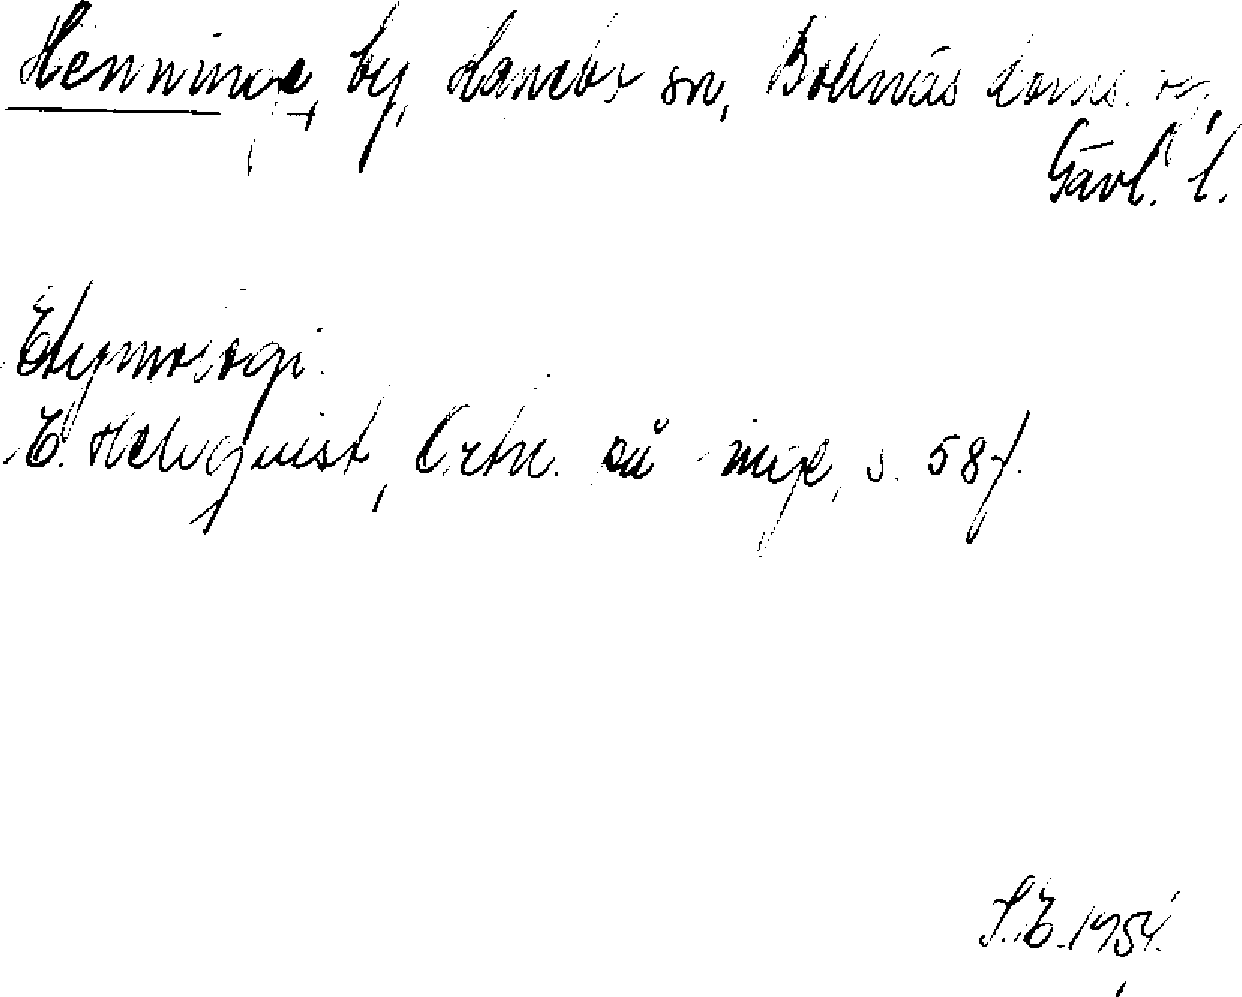 Henninge, by, Hanebo sn, Bollnäs doms.
Gävl. l.
Etymologi.
E. Hellquist, Ortn. på -inge, s. 58 f.
S.E. 1954.